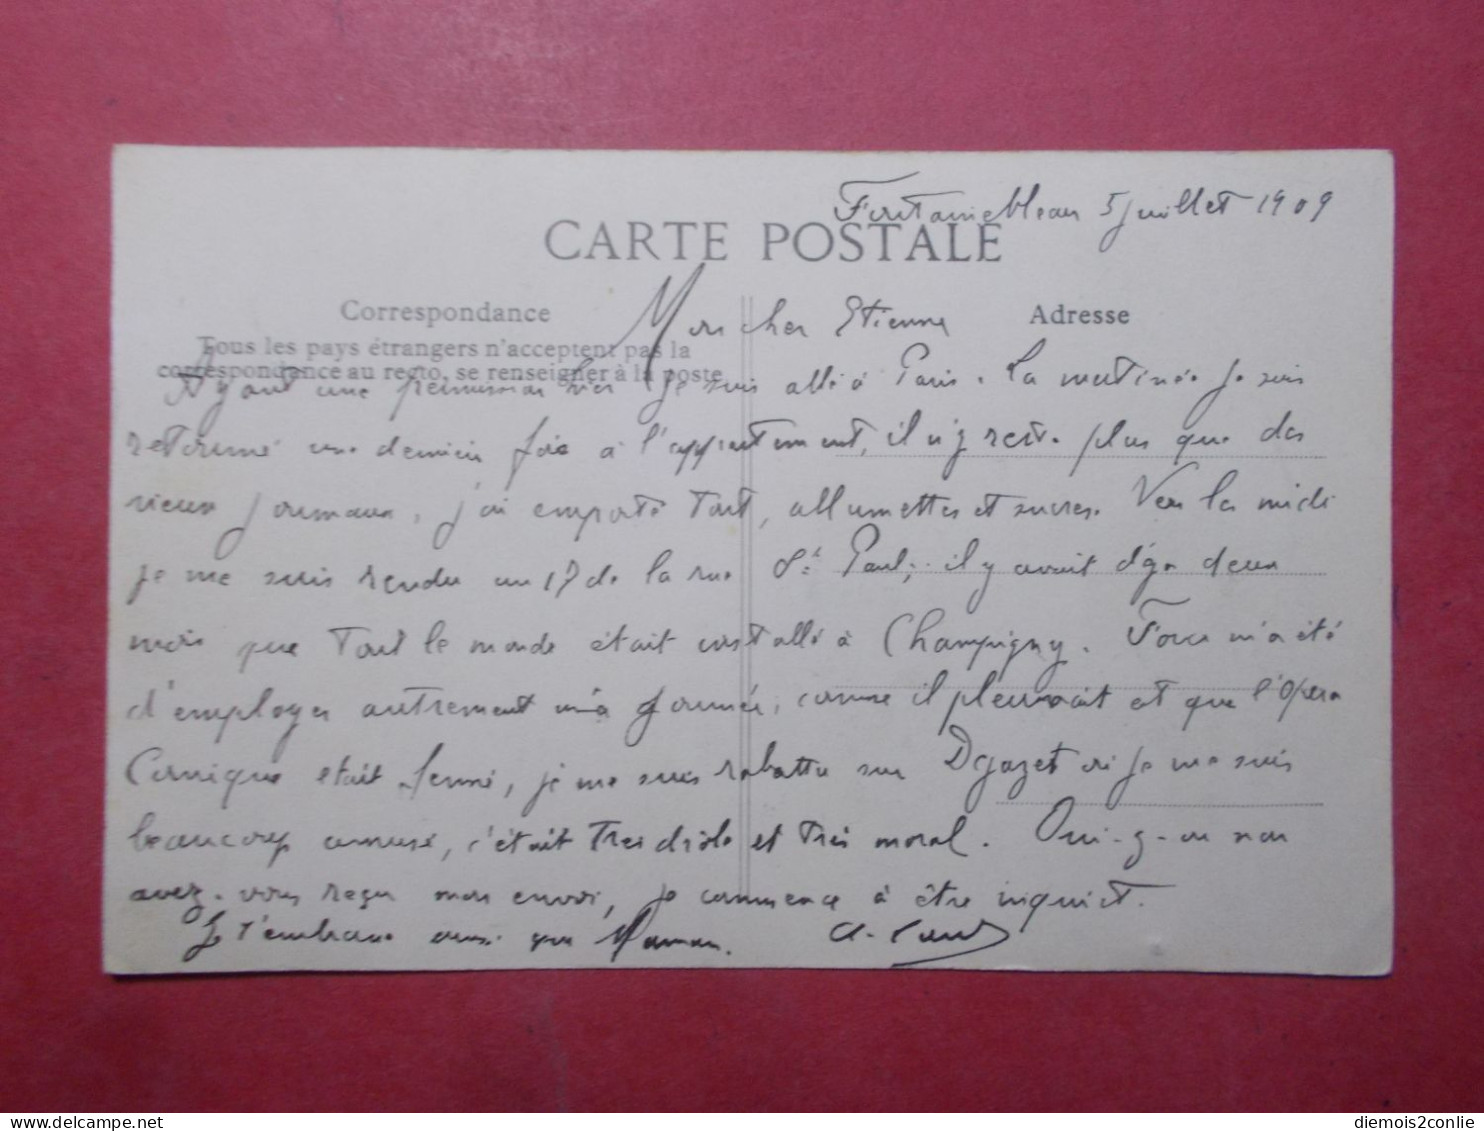 Fontainebleau 5 juillet 1909
CARTE POSTALE
Correspondance
Adresse
Tous les pays étrangers n'acceptent pas la
correspondance au recto, se renseigner à la poste
Mon cher Etienne
Ayant une permission hier je suis allé à Paris. La matinée je suis
retourné une dernière fois à l'appartement, il n'y reste plus que des
vieux journaux, j'ai emporté tout, allumettes et sucres. Vers les midi
je me suis rendu au 17 de la rue St Paul; il y avait déja deux
mois que tout le monde était installé à Champigny. Force m'a été
d'employer autrement ma journée, comme il pleuvait et que l'Opera
Comique etait fermé, je me suis rabattu sur Dejazet où je me suis
beaucoup amusé, c'était tres drôle et très moral. Oui-z-ou non
avez-vous reçu mon envoi, je commence à être inquiet.
Je t'embrasse ainsi que Maman.
diemois2conlie